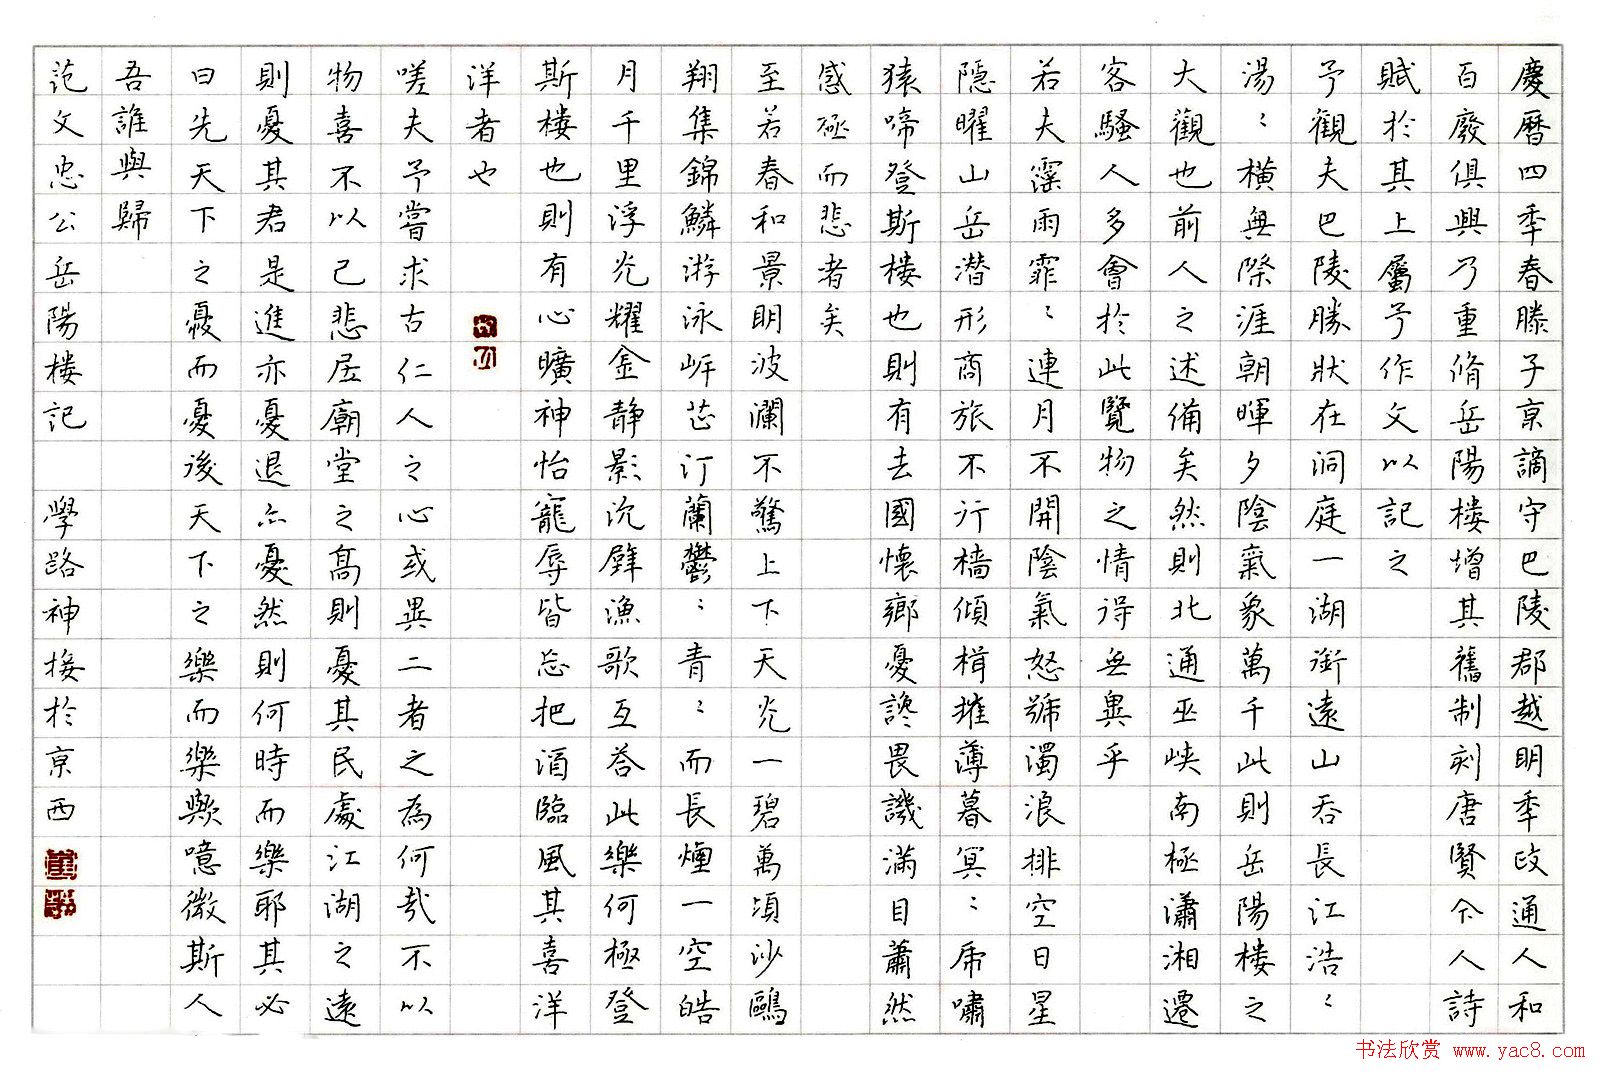 慶曆四秊春滕子京謫守巴陵郡越明秊政通人和
百廢俱興乃重脩岳陽楼增其舊制刻唐賢今人詩
賦於其上屬予作文以記之
予觀夫巴陵勝狀在洞庭一湖銜遠山吞長江浩〻
湯〻橫無際涯朝暉夕陰氣象萬千此則岳陽楼之
大觀也前人之述備矣然則北通巫峽南極瀟湘遷
客騷人多會於此覽物之情得無異乎
若夫霪雨霏〻連月不開陰氣怒號濁浪排空日星
隱曜山岳潛形商旅不行檣傾楫摧薄暮冥〻虎嘯
猿啼登斯楼也則有去國懷鄉憂讒畏譏滿目蕭然
感極而悲者矣
至若春和景明波瀾不驚上下天光一碧萬頃沙鷗
翔集錦鱗游泳岸芷汀蘭鬱〻青〻而長煙一空皓
月千里浮光耀金静影沉璧漁歌互答此樂何極登
斯楼也則有心曠神怡寵辱皆忘把酒臨風其喜洋
洋者也
嗟夫予嘗求古仁人之心或異二者之為何哉不以
物喜不以己悲居廟堂之高則憂其民處江湖之遠
則憂其君是進亦憂退亦憂然則何時而樂耶其必
曰先天下之憂而憂後天下之樂而樂歟噫微斯人
吾誰與歸
范文忠公岳陽楼記 學路神接於京西
书法欣赏 www.yac8.com